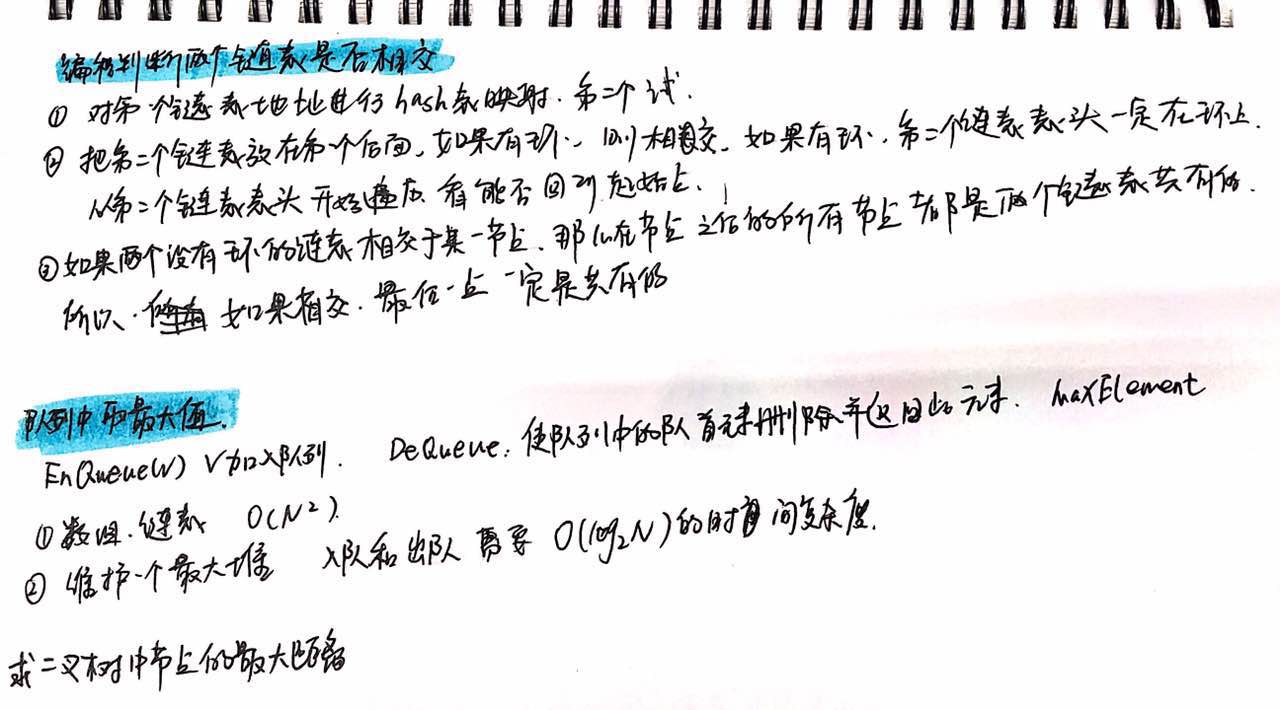 编程判断两个链表是否相交
① 对第一个链表地址进行hash表映射.第二个试.
② 把第二个链表放在第一个后面,如果有环,则相交.如果有环,第二个链表表头一定在环上.
从第二个链表表头开始遍历.看能否回到起始点.
③如果两个没有环的链表相交于某一节点.那么在节点之后的所有节点都是两个链表共有的.
所以.如果相交.最后一点一定是共有的
队列中取最大值.
EnQueue(v) v加入队列. DeQueue.使队列中的队首元素删除并返回此元素. MaxElement
①数组.链表 O(N²).
② 维护一个最大堆 入队和出队需要O(log₂N)的时间复杂度.
求二叉树中节点的最大距离